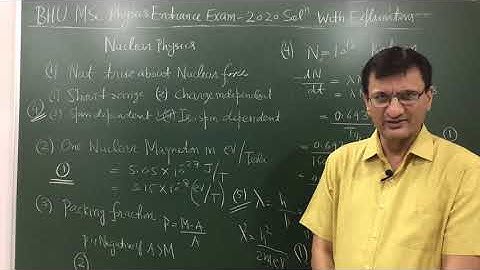 BHU MSc. Physics Entrance Exam-2020 Solⁿ With Explanation
Nuclear Physics
(1) Not true about Nuclear force
(1) Short range (2) Charge independent
(3) Spin dependent (4) Iso spin dependent
(4)
(2) One Nuclear Magneton in eV/Tesla
(1) = 5.05×10⁻²⁷ J/T
= 3.15×10⁻⁸ (eV/T)
(3) Packing fraction P = M-A/A
P: Negative if A>M
(2)
(4) N = 10¹²
dN/dt = λN
= 0.693/T
(1)
(5) λ = h/P
λ² = h²/2m(eV)
(1)